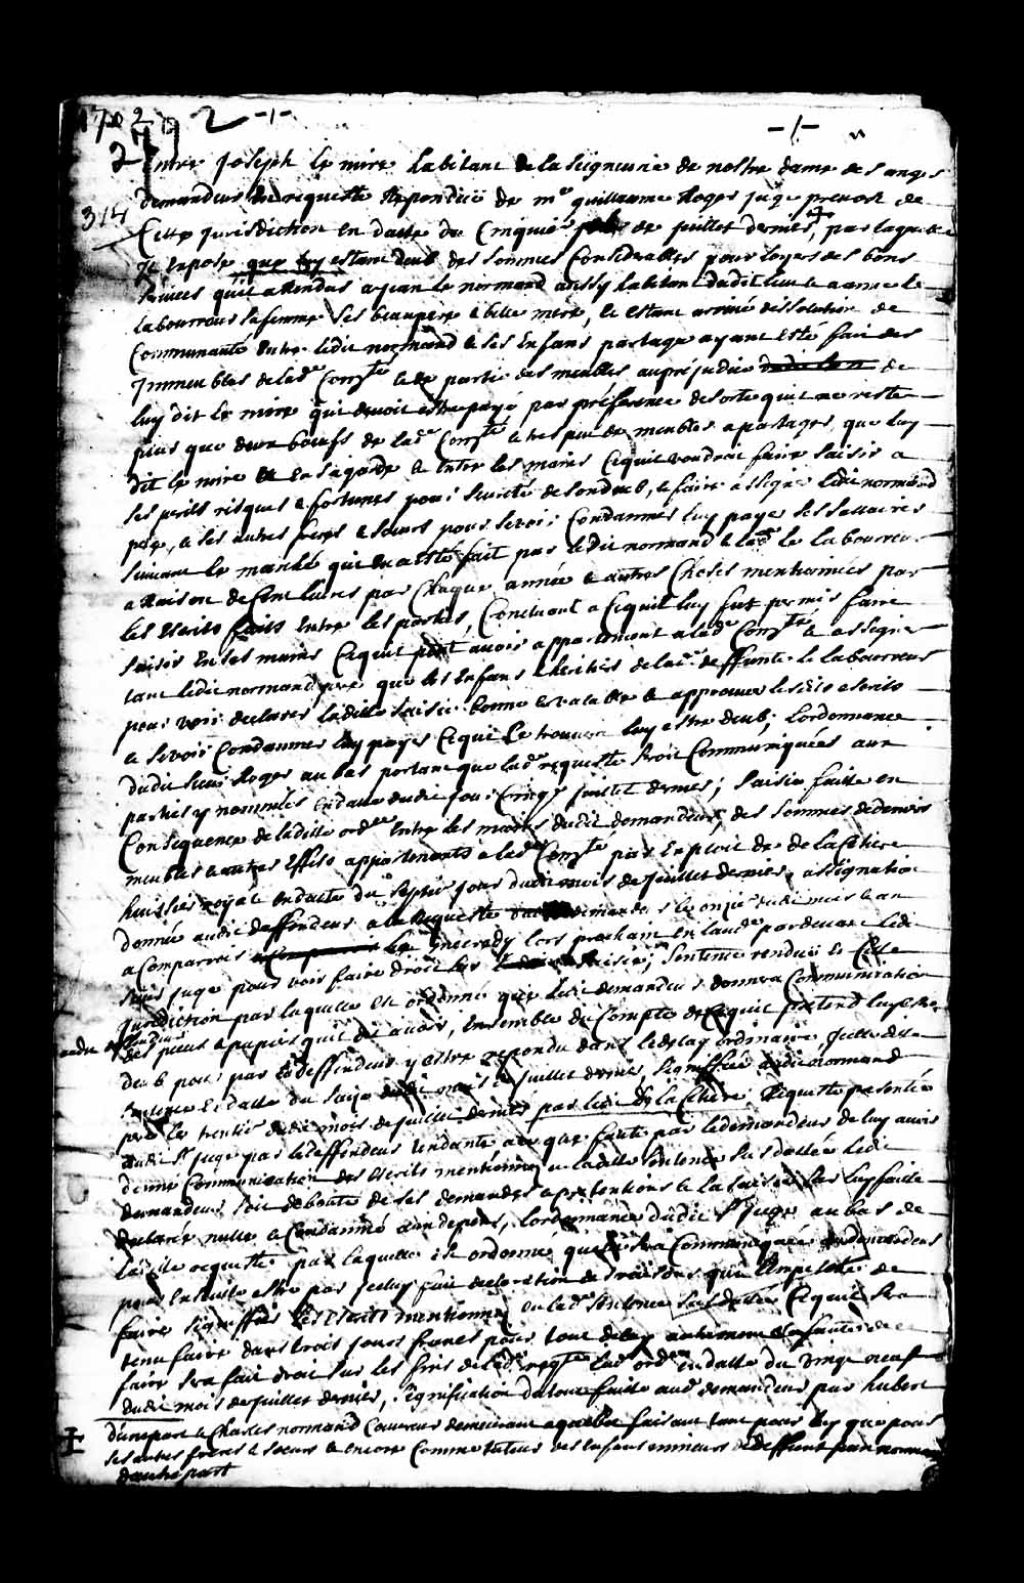 1702 2 -1- -1-
279
Entre Joseph le mire habitant de la seigneurie de nostre dame des anges
314
demandeur en requeste Repondüe de me guillaume Roger juge prevost de
Cette jurisdiction en datte du Cinquie de juillet dernier, par laquelle
Il expose que luy estant deub des sommes Considerables pour loyers des bons
services qu'il a Rendus a jean le normand aussy habitant dudit lieu & a anne le
labourreus sa femme ses beaupere & belle mere, & estant arrivé dissolution de
Communauté Entre ledit normand & ses Enfans partage ayant esté fait des
Immeubles de lade Comté & de partie des meubles au préjudice de
luy dit le mire qui devoit estre payé par préférence de sorte qu'il ne reste
plus que deux bœufs de lade Comté & tres peu de meubles a partager, que luy
dit le mire a en sa garde & Entre les mains Ce qu'il voudroit faire saisir a
ses perils risques & fortunes pour seureté de son deub, & faire assigner ledit normand
pere, & les autres freres & sœurs pour se voir Condamner luy payer ses sallaires
suivant le marché qui en a esté fait par ledit normand & lade le labourreus
a Raison de Cent livres par Chaque année & autres Choses mentionnées par
les Escrits faits Entre les parties, Concluant a Ce qu'il luy fut permis faire
saisir En ses mains Ce qu'il peut avoir appartenant a lade Comté & assigner
tant ledit normand pere que les Enfans & heritiers de lade deffunte le labourreus
pour voir declarer ladite saisie bonne & valable & approuver lesdits escrits
& se voir Condamner luy payer Ce qui se trouvera luy estre deub; lordonnance
dudit sieur Roger au bas portant que lade requeste seroit Communiquée aux
parties y nommées En datte dudit jour Cinqe juillet dernier; saisie faite en
Consequence de ladite ordce Entre les mains dudit demandeur, des sommes de deniers
meubles & autres Effets appartenants a lade Comté par Exploit de de la Cetiere
huissier royal En datte du septie jour dudit mois de juillet dernier, assignation
donnée audit deffendeur a la Requeste dudit demandeur le onzie dudit mois & an
a Comparroir mecredy lors prochain En laude pardevant ledit
sieur juge pour voir faire droit sur saisie; sentence rendüe En Cette
jurisdiction par laquelle Est ordonné que ledit demandeur donnera Communication
des pieces & papiers qu'il dit avoir, Ensemble du Compte de Ce qu'il pretend luy estre
deub pour par le deffendeur y estre repondu dans le delay ordinaire, Icelle dite
sentence En datte du juillet dernier, signiffiée audit normand
pere le trentie dudit mois de juillet dernier par ledit de la Cetiere; Requeste presentée
audit sr juge par le deffendeur tendante a ce que faute par le demandeur de luy avoir
donné Communication des Escrits mentionnez en ladite sentence sus dattée ledit
demandeur soit debouté de ses demandes & pretentions & la saisie par luy faite
declarée nulle & Condamné aux depens, lordonnance dudit sr juge au bas de
ladite requeste par laquelle est ordonné quelle sera Communiquée au demandeur
pour Ensuite estre par Iceluy fait declaration des raisons qui lempeschent de
faire signiffier les Escrits mentionnez En lade sentence sus dattée Ce qu'il sera
tenu faire dans trois jours francs pour tout delay autrement & a faute de ce
faire sera fait droit sur les fins de lade reqte lade ordce en datte du vingt neuf
dudit mois de juillet dernier, signification du tout faite aud demandeur par hubert
d'une part & Charles normand Couvreur demeurant a quebec faisant tant pour luy que pour
ses autres freres & sœurs & encore Comme tuteur des enfans mineurs de deffunt jean normand
d'autre part